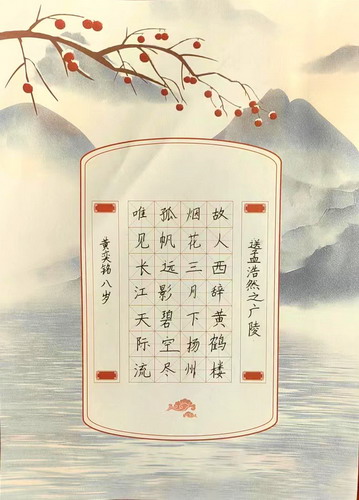 送孟浩然之广陵
故人西辞黄鹤楼
烟花三月下扬州
孤帆远影碧空尽
唯见长江天际流
黄奕锦八岁